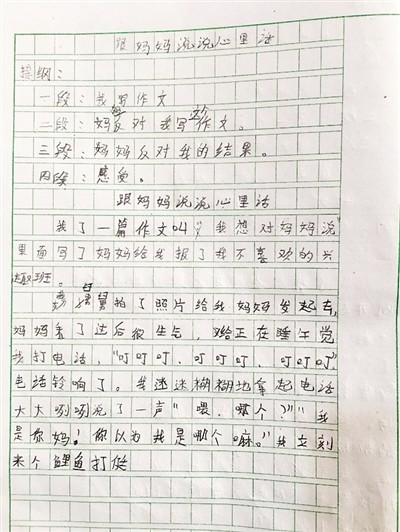 跟妈妈说说心里话
提纲：
一段：我写作文
二段：妈妈反对我写这个作文。
三段：妈妈反对我的结果。
四段：感受。
跟妈妈说说心里话
我了一篇作文叫“我想对妈妈说”
里面写了妈妈给我报了我不喜欢的兴
趣班。
舅舅拍了照片给我妈妈发起去，
妈妈看了过后很生气，给正在睡午觉
我打电话，“叮叮叮，叮叮叮，叮叮叮”
电话铃响了。我迷迷糊糊地拿起电话
大大咧咧说了一声“喂，哪个？”“我
是你妈！你以为我是哪个嘛。”我立刻
来个鲤鱼打挺